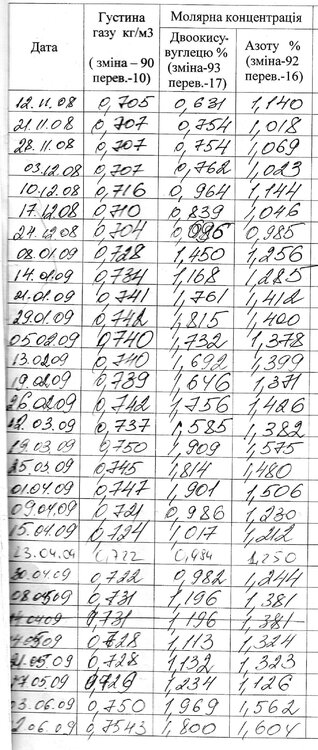 Дата Густина газу кг/м3 ( зміна – 90 перев.-10) Молярна концентрація
Двоокису-вуглецю % (зміна-93 перев.-17) Азоту % (зміна-92 перев.-16)
12.11.08 0,705 0,631 1,140
21.11.08 0,707 0,754 1,018
28.11.08 0,707 0,754 1,069
03.12.08 0,707 0,762 1,023
10.12.08 0,716 0,964 1,144
17.12.08 0,710 0,839 1,046
24.12.08 0,704 0,985
08.01.09 0,728 1,450 1,256
14.01.09 0,734 1,168 1,285
21.01.09 0,741 1,761 1,412
29.01.09 0,742 1,815 1,400
05.02.09 0,740 1,732 1,378
13.02.09 0,740 1,692 1,399
19.02.09 0,739 1,646 1,371
26.02.09 0,742 1,756 1,426
12.03.09 0,737 1,585 1,382
19.03.09 0,750 1,909 1,575
25.03.09 0,745 1,814 1,480
01.04.09 0,747 1,901 1,506
09.04.09 0,721 0,986 1,230
15.04.09 0,724 1,017 1,212
23.04.09 0,722 0,984 1,250
30.04.09 0,722 0,982 1,244
08.05.09 0,731 1,196 1,381
0,731 1,196 1,381
0,728 1,113 1,324
21.05.09 0,728 1,132 1,323
27.05.09 0,726 1,234 1,126
03.06.09 0,750 1,969 1,562
2.06.09 0,7543 1,800 1,604